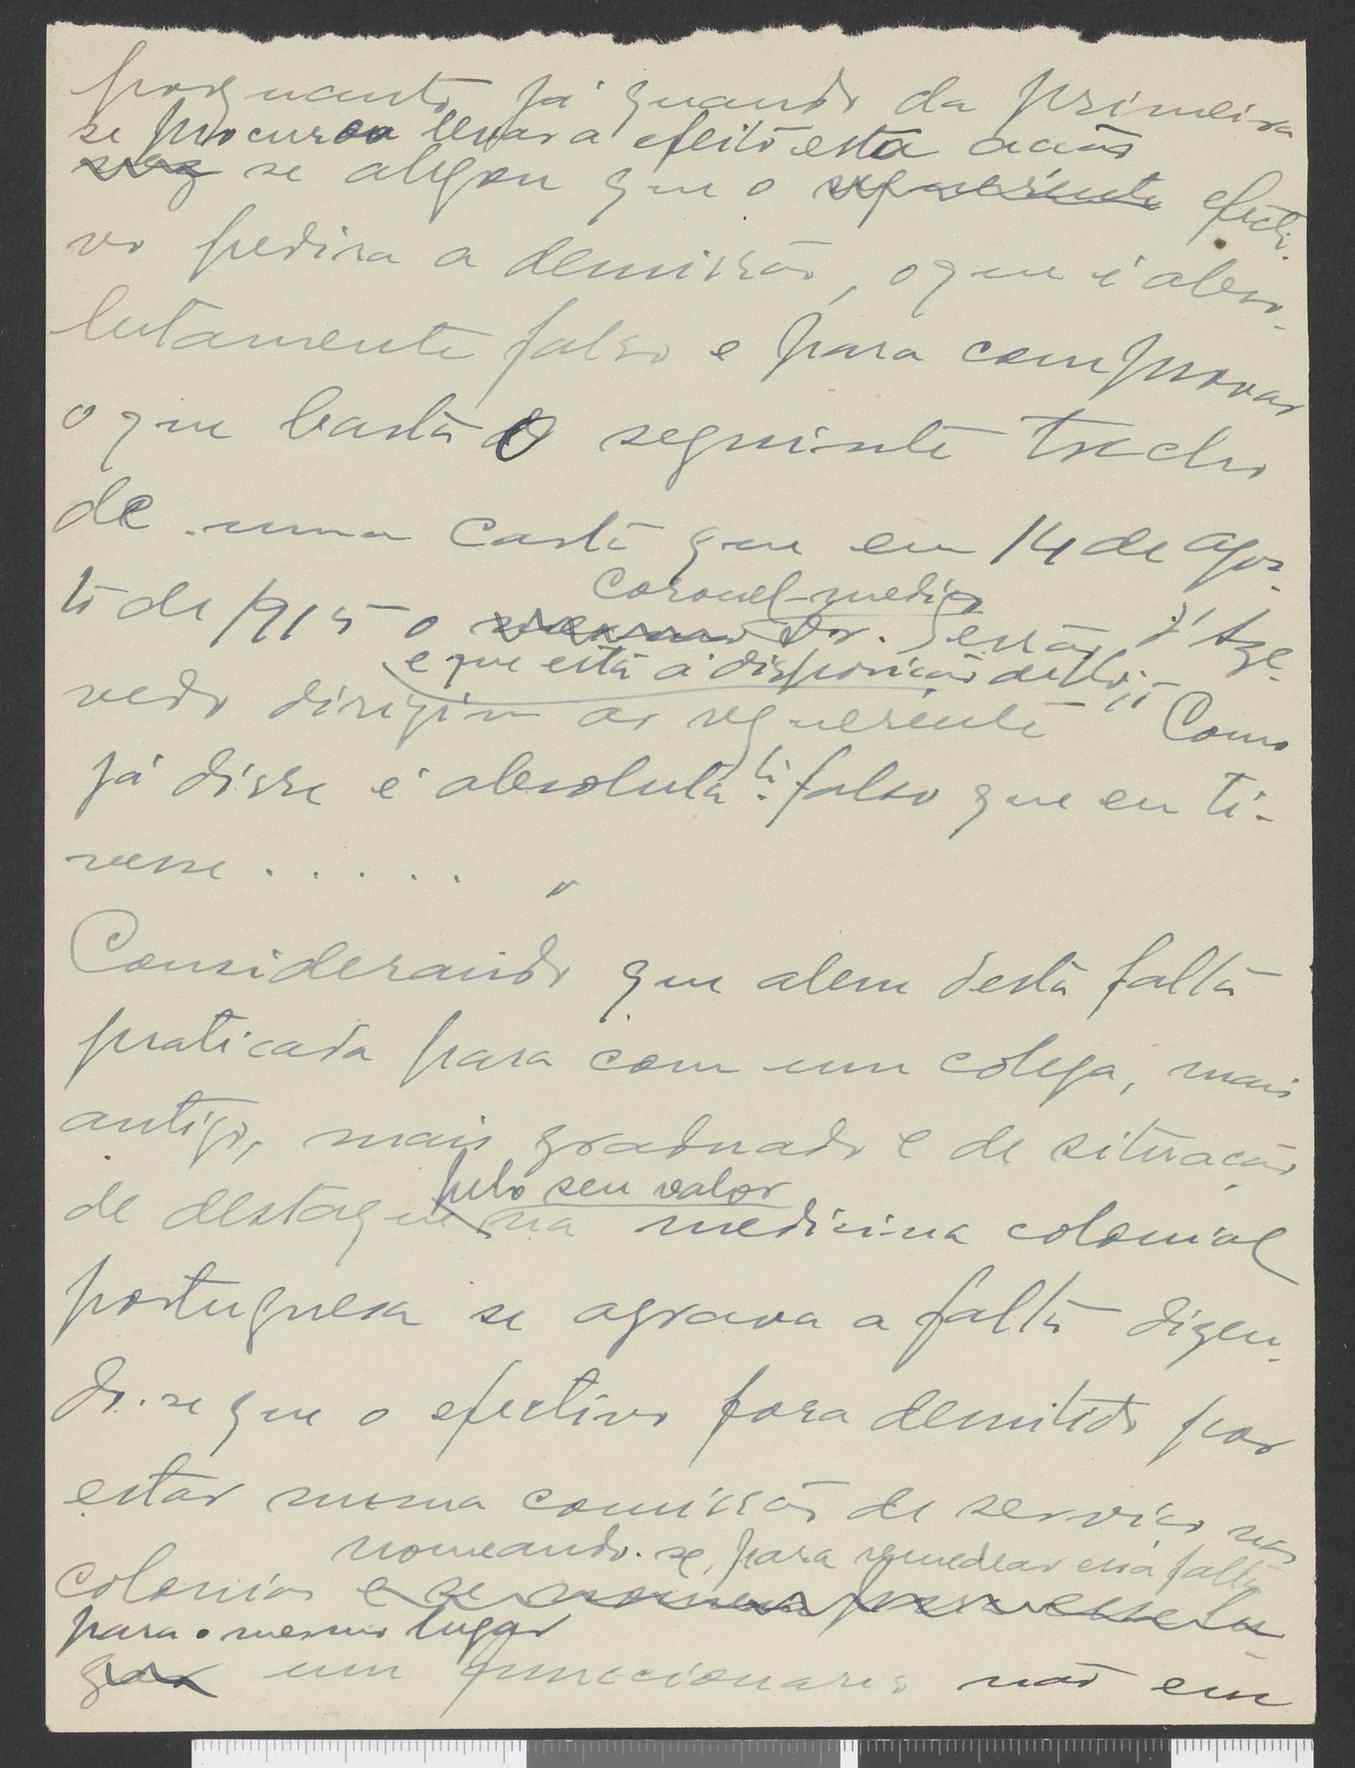 porquanto já quando da primeira
se procurou levar a efeito esta acção
vez se alegou que o requerente efecti-
vo pedira a demissão, o que é abso-
lutamente falso e para comprovar
o que basta o seguinte trecho
de uma carta que em 14 de agos-
coronel-medico
to de 1915 o Dr. Serrão d'Aze-
e que está á disposição de
vedo dirigiu ao requerente "Como
já disse é absolutate. falso que eu ti-
vesse . . . . . "
Considerando que alem desta falta
praticada para com um colega, mais
antigo, mais graduado e de situação
pelo seu valor
de destaque na medicina colonial
portuguesa se agrava a falta dizen-
do-se que o efectivo fora demitido por
estar numa comissão de serviço nas
nomeando-se, para remediar essa falta
colonias e se nomeou para esse lu-
para o mesmo lugar
gar um funccionario não em